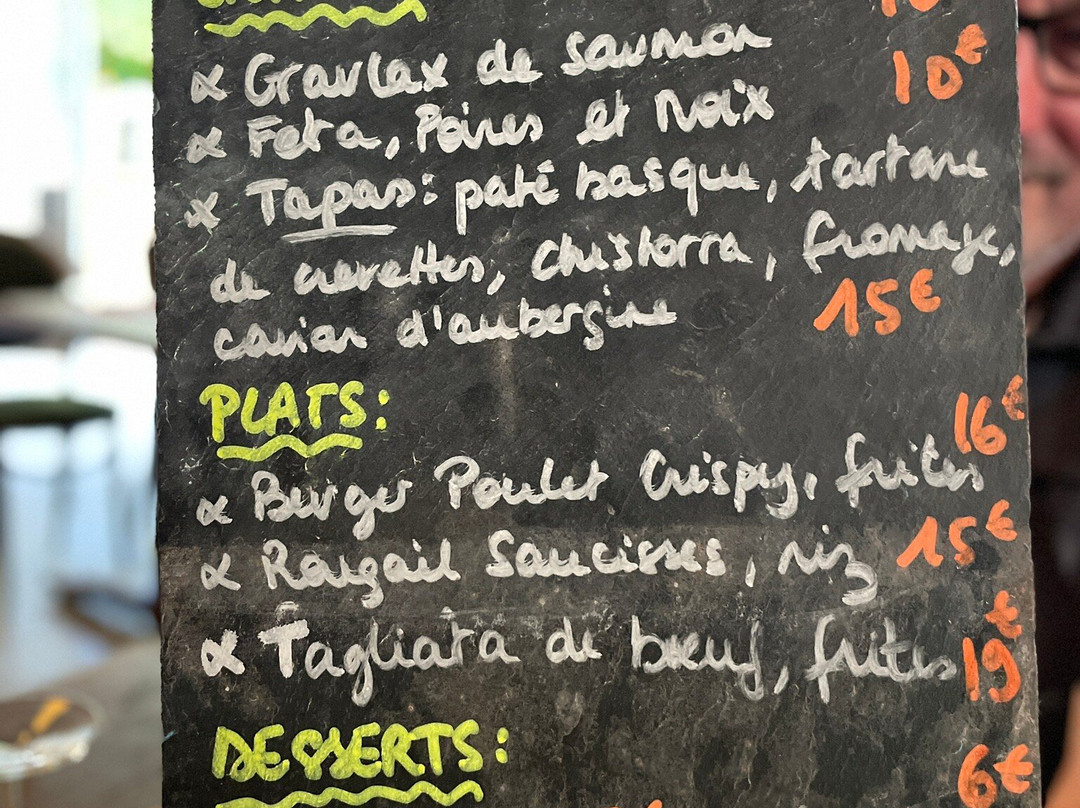 ∝ Gravlax de saumon 10€
∝ Feta, Poires et Noix
∝ Tapas: paté basque, tartare
de crevettes, Chistorra, fromage,
caviar d'aubergine 15€
PLATS:
∝ Burger Poulet Crispy, frites 16€
∝ Rougail Saucisses, riz 15€
∝ Tagliata de bœuf, frites 19€
DESSERTS: 6€